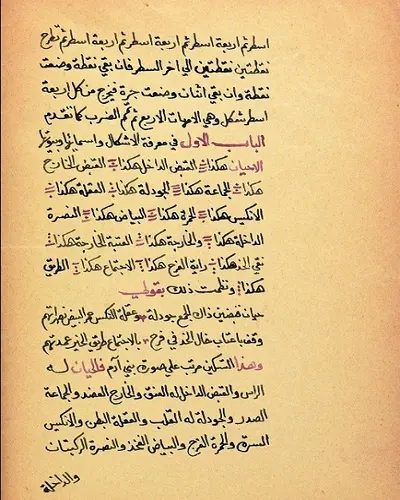 اسطر ثم اربعة اسطر ثم اربعة اسطر ثم اربعة اسطر ثم تطرح
نقطتين نقطتين الى اخر السطر فان بقي نقطة وضعت
نقطة وان بقي اثنان وضعت جرة فيخرج من كل اربعة
اسطر شكل وهي الامهات الاربع ثم تمم الضرب كما تقدم
الباب الاول في معرفة الاشكال واسمائها وبيوتها
الاحيان هكذا القبض الداخل هكذا القبض الخارج
هكذا الجماعة هكذا الجودلة هكذا العقلة هكذا
الانكيس هكذا الحمرة هكذا البياض هكذا النصرة
الداخلة هكذا والخارجة هكذا العتبة الخارجة هكذا
نقي الخد هكذا راية الفرح هكذا الاجتماع هكذا الطريق
هكذا ونظمت ذلك بقولي
حيان قبضين ذاك الجمع جودلة وعقلة النكس حمر البيض
وقف باعتاب خال الخد في فرح بالاجتماع طريق الخير
وهذا التسكين مرتب على صورة بني آدم فالحيان له
الراس والقبض الداخل له العنق والخارج العضد والجماعة
الصدر والجودلة له القلب والعقلة البطن والانكيس
السرة والحمرة الفرج والبياض الفخذ والنصرة الركبتان
والداخلة